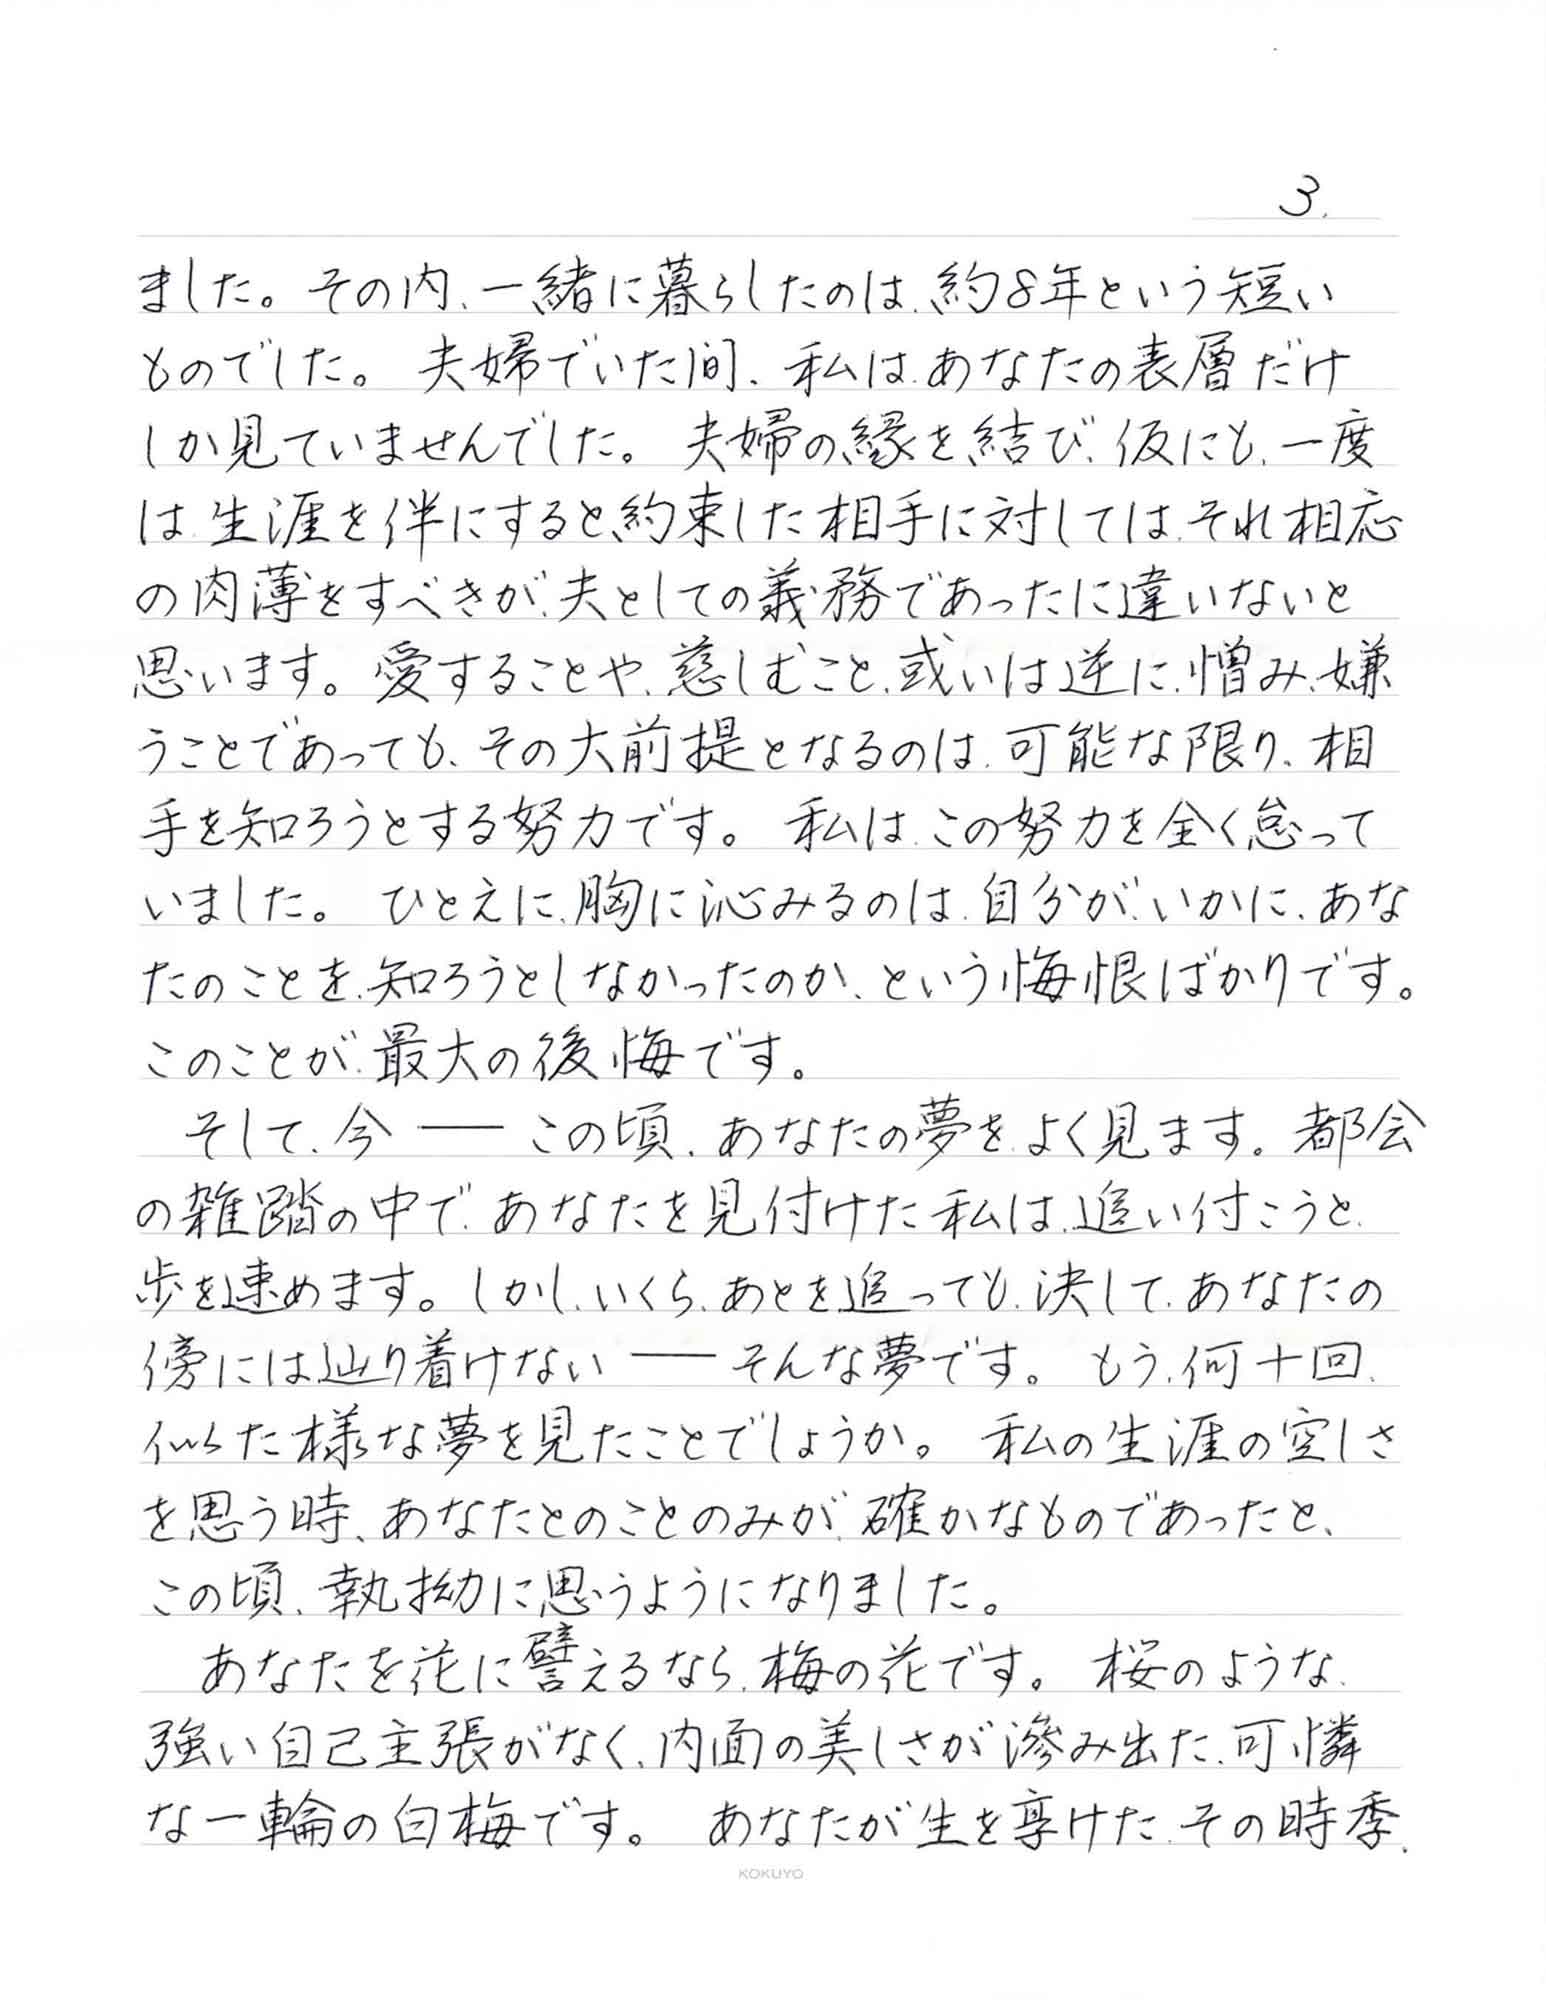 3.
ました。その内、一緒に暮らしたのは、約8年という短い
ものでした。 夫婦でいた間、私は、あなたの表層だけ
しか見ていませんでした。 夫婦の縁を結び、仮にも、一度
は、生涯を伴にすると約束した相手に対しては、それ相応
の肉薄をすべきが、夫としての義務であったに違いないと
思います。愛することや、慈しむこと、或いは逆に、憎み、嫌
うことであっても、その大前提となるのは、可能な限り、相
手を知ろうとする努力です。 私は、この努力を全く怠って
いました。 ひとえに、胸に沁みるのは、自分が、いかに、あな
たのことを、知ろうとしなかったのか、という悔恨ばかりです。
このことが、最大の後悔です。
そして、今 ── この頃、あなたの夢を、よく見ます。都会
の雑踏の中で、あなたを見付けた私は、追い付こうと、
歩を速めます。しかし、いくら、あとを追っても、決して、あなたの
傍には辿り着けない ── そんな夢です。 もう、何十回、
似た様な夢を見たことでしょうか。 私の生涯の空しさ
を思う時、あなたとのことのみが、確かなものであったと、
この頃、執拗に思うようになりました。
あなたを花に譬えるなら、梅の花です。 桜のような、
強い自己主張がなく、内面の美しさが滲み出た、可憐
な一輪の白梅です。 あなたが生を享けた、その時季、
KOKUYO